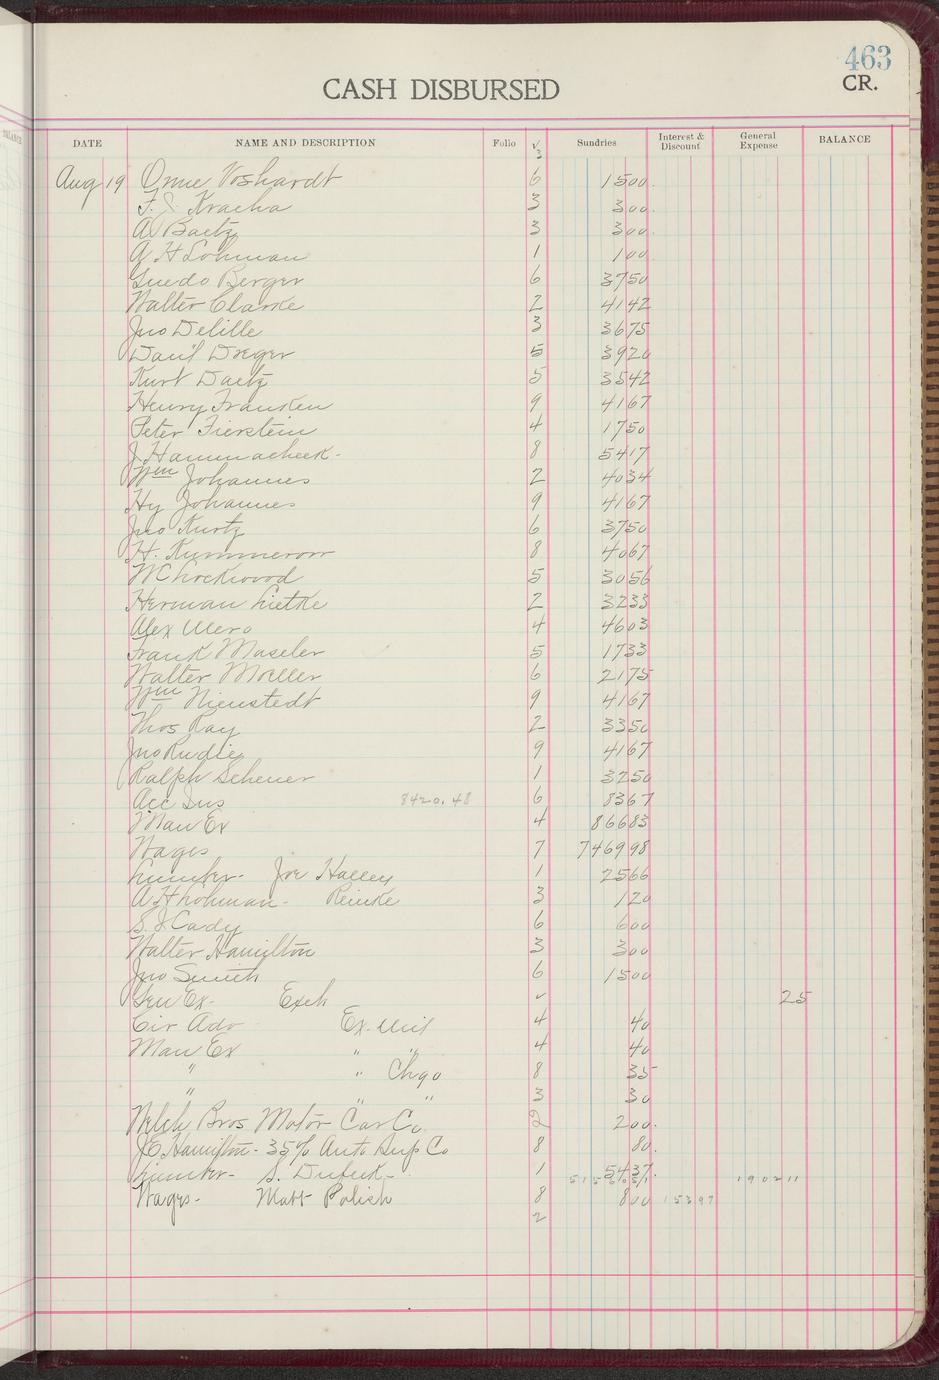 463
CASH DISBURSED CR.
DATE NAME AND DESCRIPTION Folio √ Sundries Interest & Discount General Expense BALANCE
3
Aug 19 Onnie Voshardt 6 1500
F. J. Kracha 3 300
A Baetz 3 300
A H Lohman 1 100
Guedo Berger 6 3750
Walter Clarke 2 4142
Jno Delille 3 3675
Danl Dreger 5 3920
Kurt Daetz 5 3542
Henry Franken 9 4167
Peter Fierstein 4 1750
J Hammacheck 8 5417
Wm Johannes 2 4034
Hy Johannes 9 4167
Jno Kurtz 6 3750
H. Kummerow 8 4067
W C Lockwood 5 3056
Herman Lietke 2 3233
Alex Mero 4 4603
Frank Maseler 5 1733
Walter Moeller 6 2175
Wm Nienstedt 9 4167
Thos Ray 2 3350
Jno Rudie 9 4167
Ralph Scheuer 1 3250
Acc Ins 8420.48 6 8367
Man Ex 4 86683
Wages 7 746998
Lumber - Joe Halley 1 2566
A H Lohman - Reinke 3 120
S. J. Cady 6 600
Walter Hamilton 3 300
Jno Smith 6 1500
Gen Ex - Exch √ 25
Cir Adv Ex. Mil 4 40
Man Ex " " 4 40
" " Chgo 8 35
" " " 3 30
Welch Bros Motor Car Co. 2 200
J E Hamilton - 35% Auto Sup Co 8 80
Lumber - S. Dufek - 1 5437
190211
Wages - Matt Polish 8 800 15397
2